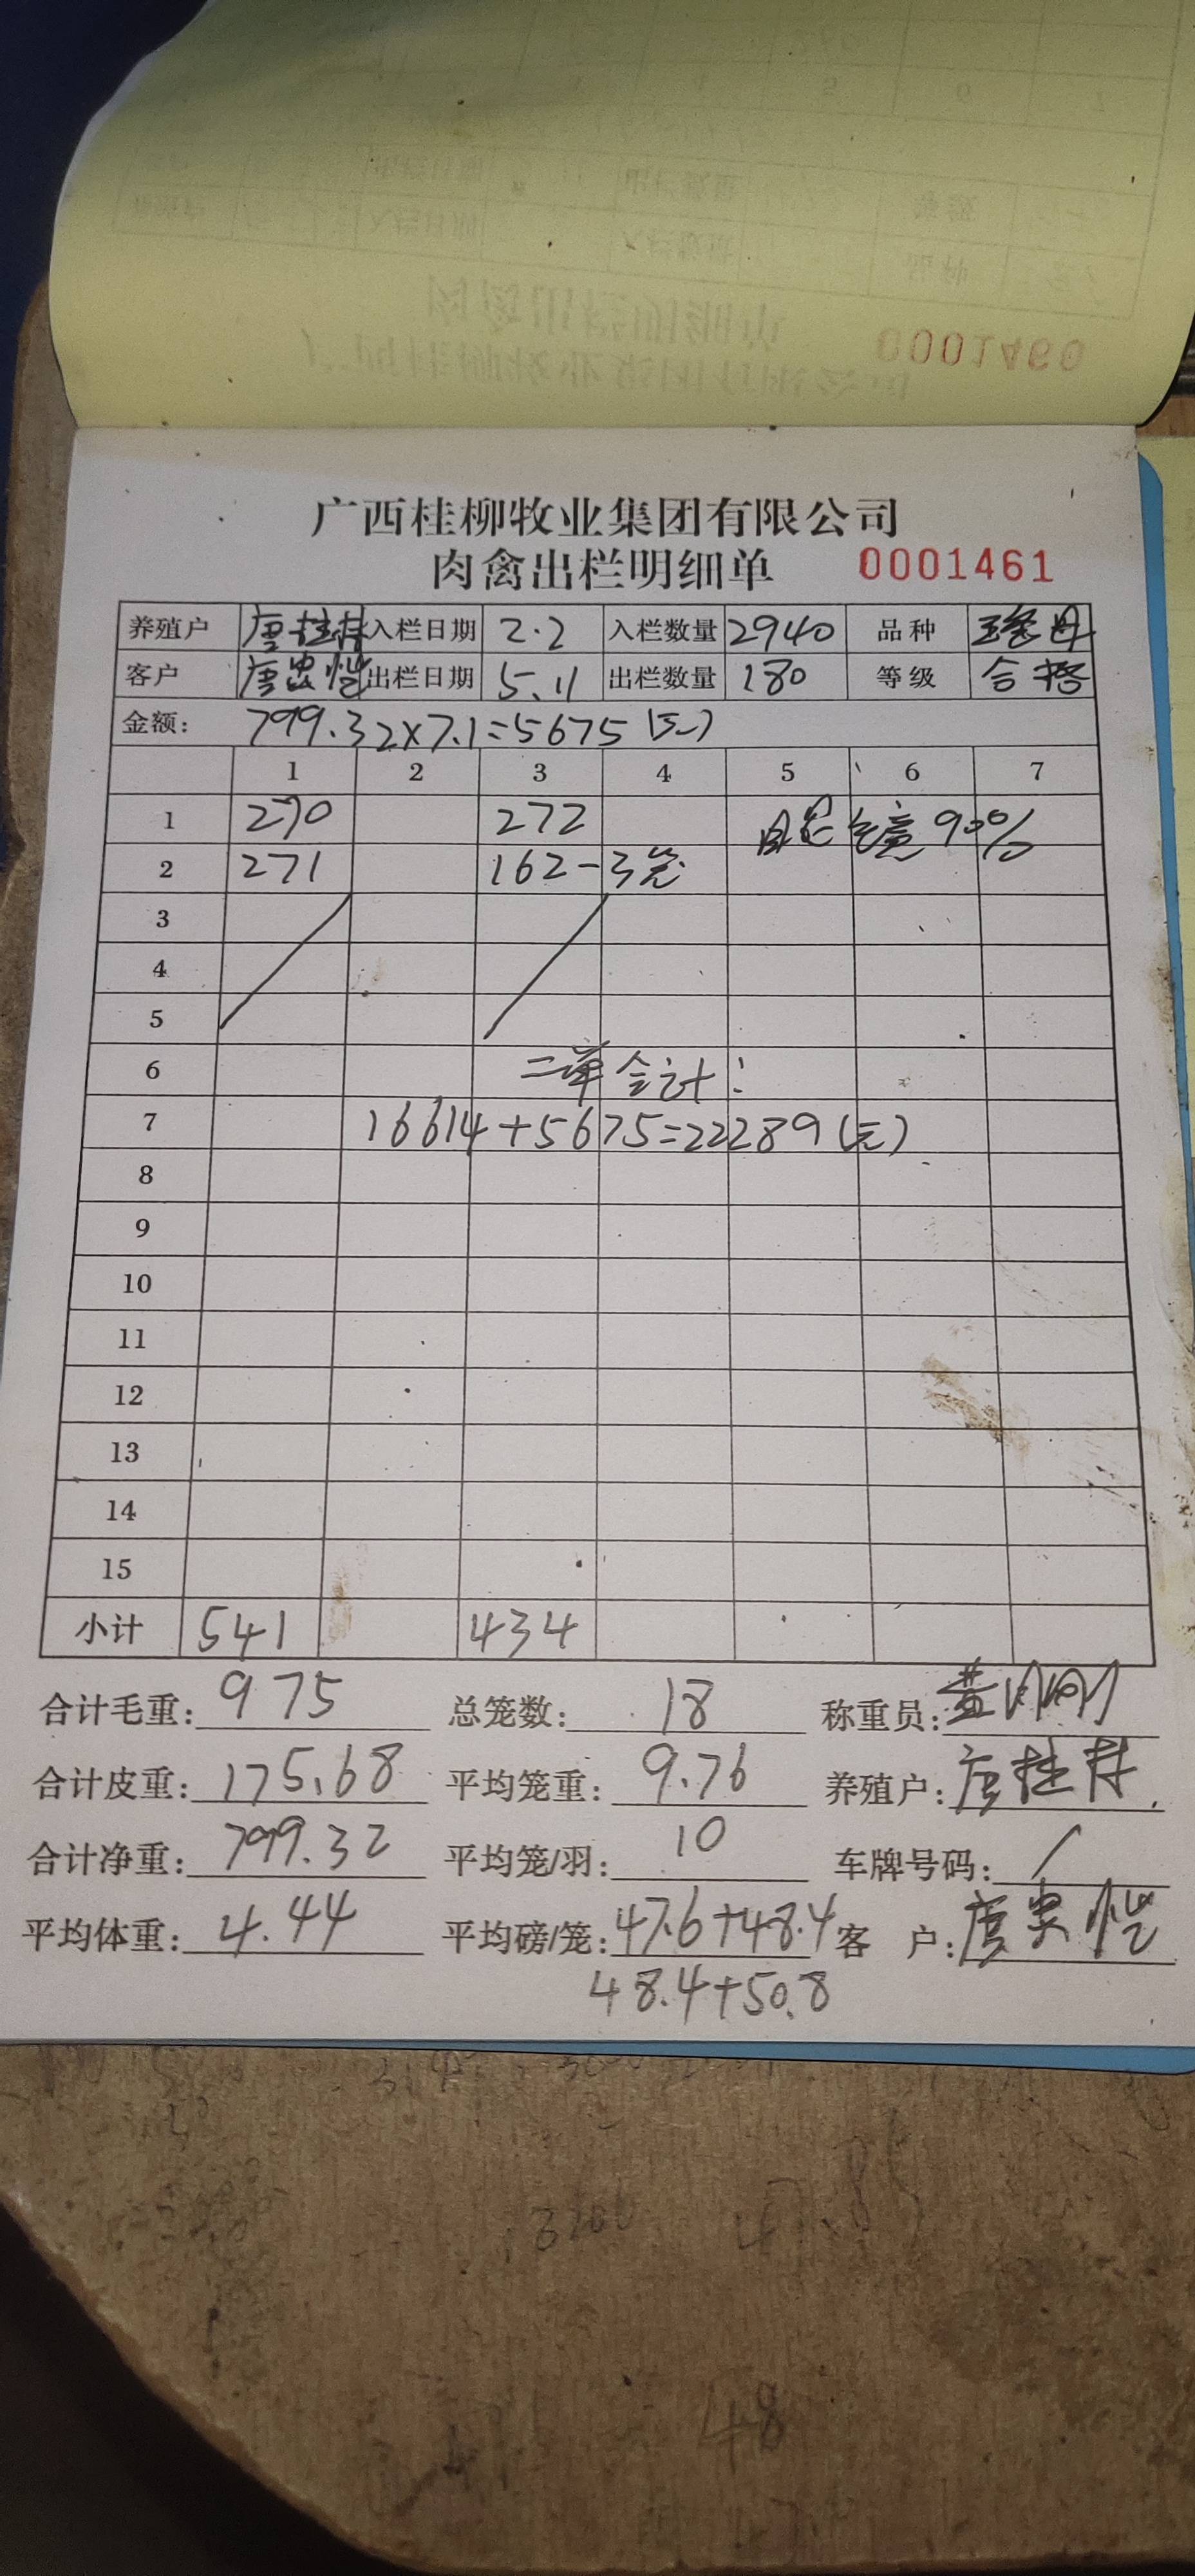 0001460
广西桂柳牧业集团有限公司
肉禽出栏明细单 0001461
养殖户 唐桂林 入栏日期 2.2 入栏数量 2940 品种
客户 唐忠恺 出栏日期 5.11 出栏数量 180 等级 合格
金额: 799.32×7.1=5675(元)
1 2 3 4 5 6 7
1 270 272 90%
2 271 162-3笼
3
4
5
6 二单合计:
7 16614+5675=22289(元)
8
9
10
11
12
13
14
15
小计 541 434
合计毛重: 975 总笼数: 18 称重员:
合计皮重: 175.68 平均笼重: 9.76 养殖户: 唐桂林
合计净重: 799.32 平均笼/羽: 10 车牌号码: /
平均体重: 4.44 平均磅/笼: 47.6+48.4 客 户: 唐忠恺
48.4+50.8